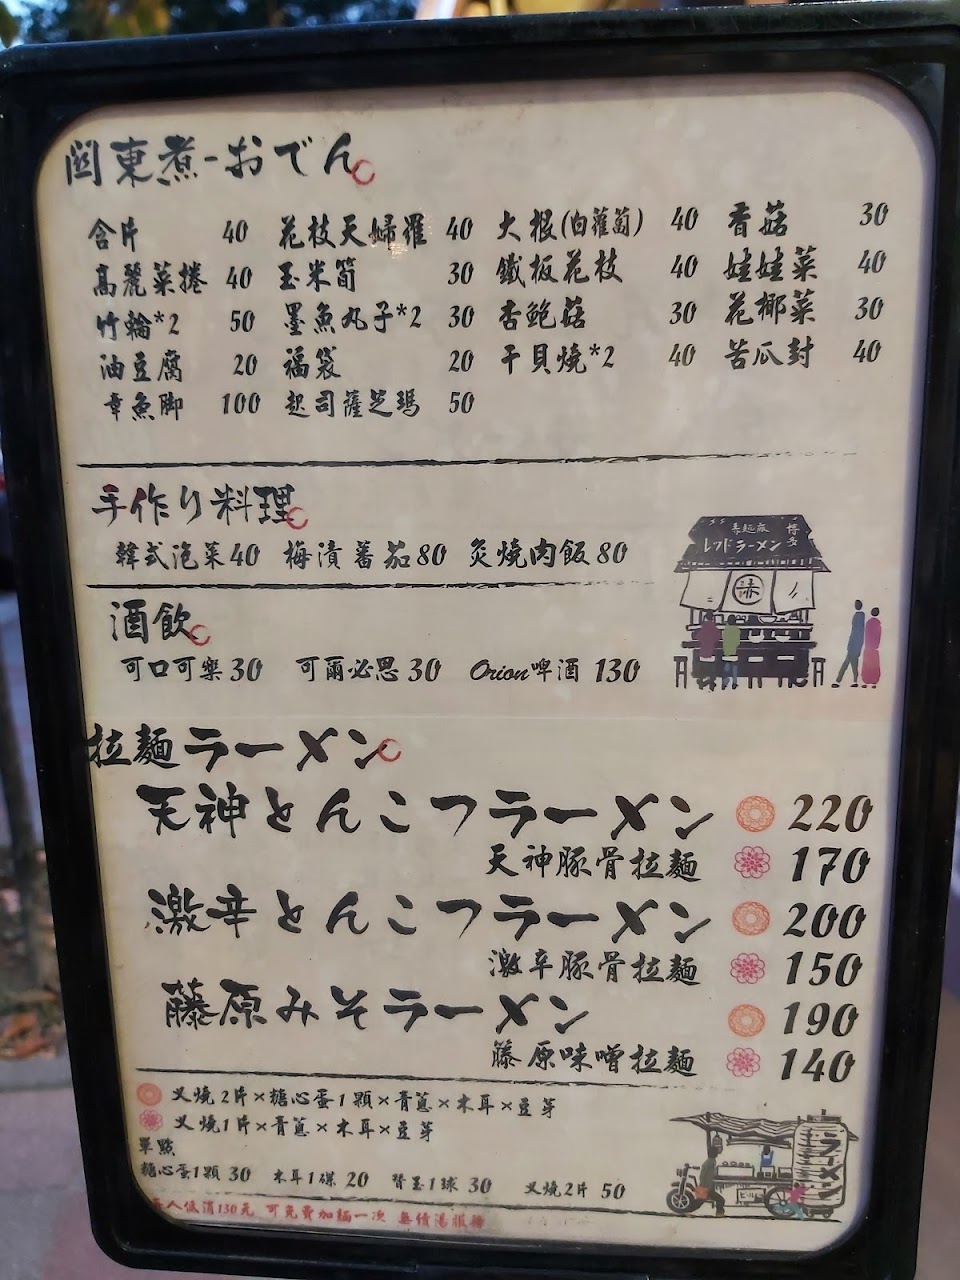 関東煮-おでん
含片 40 花枝天婦羅 40 大根(白蘿蔔) 40 香菇 30
高麗菜捲 40 玉米筍 30 鐵板花枝 40 娃娃菜 40
竹輪*2 50 墨魚丸子*2 30 杏鮑菇 30 花椰菜 30
油豆腐 20 福袋 20 干貝燒*2 40 苦瓜封 40
章魚脚 100 起司薩芝瑪 50
手作り料理
韓式泡菜40 梅漬蕃茄80 炙燒肉飯80
酒飲
可口可樂30 可爾必思30 Orion啤酒 130
拉麵ラーメン
天神とんこつラーメン 220
天神豚骨拉麵 170
激辛とんこつラーメン 200
激辛豚骨拉麵 150
藤原みそラーメン 190
藤原味噌拉麵 140
叉燒2片×糖心蛋1顆×青蔥×木耳×豆芽
叉燒1片×青蔥×木耳×豆芽
單點
糖心蛋1顆 30 木耳1碟 20 替玉1球 30 叉燒2片 50
每人低消130元 可免費加麵一次 無續湯服務
博多
ラーメン
赤
ラーメン